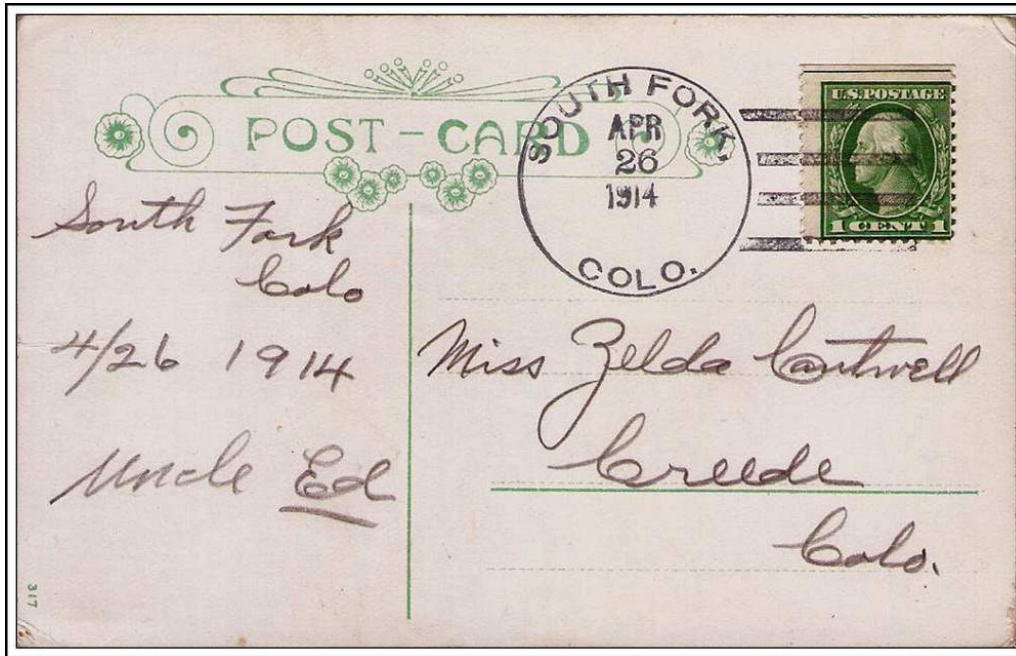 POST-CARD
SOUTH FORK,
APR
26
1914
COLO.
U.S. POSTAGE
1 CENT 1
South Fork
Colo
4/26 1914
Uncle Ed
Miss Zelda Cantwell
Creede
Colo.
317